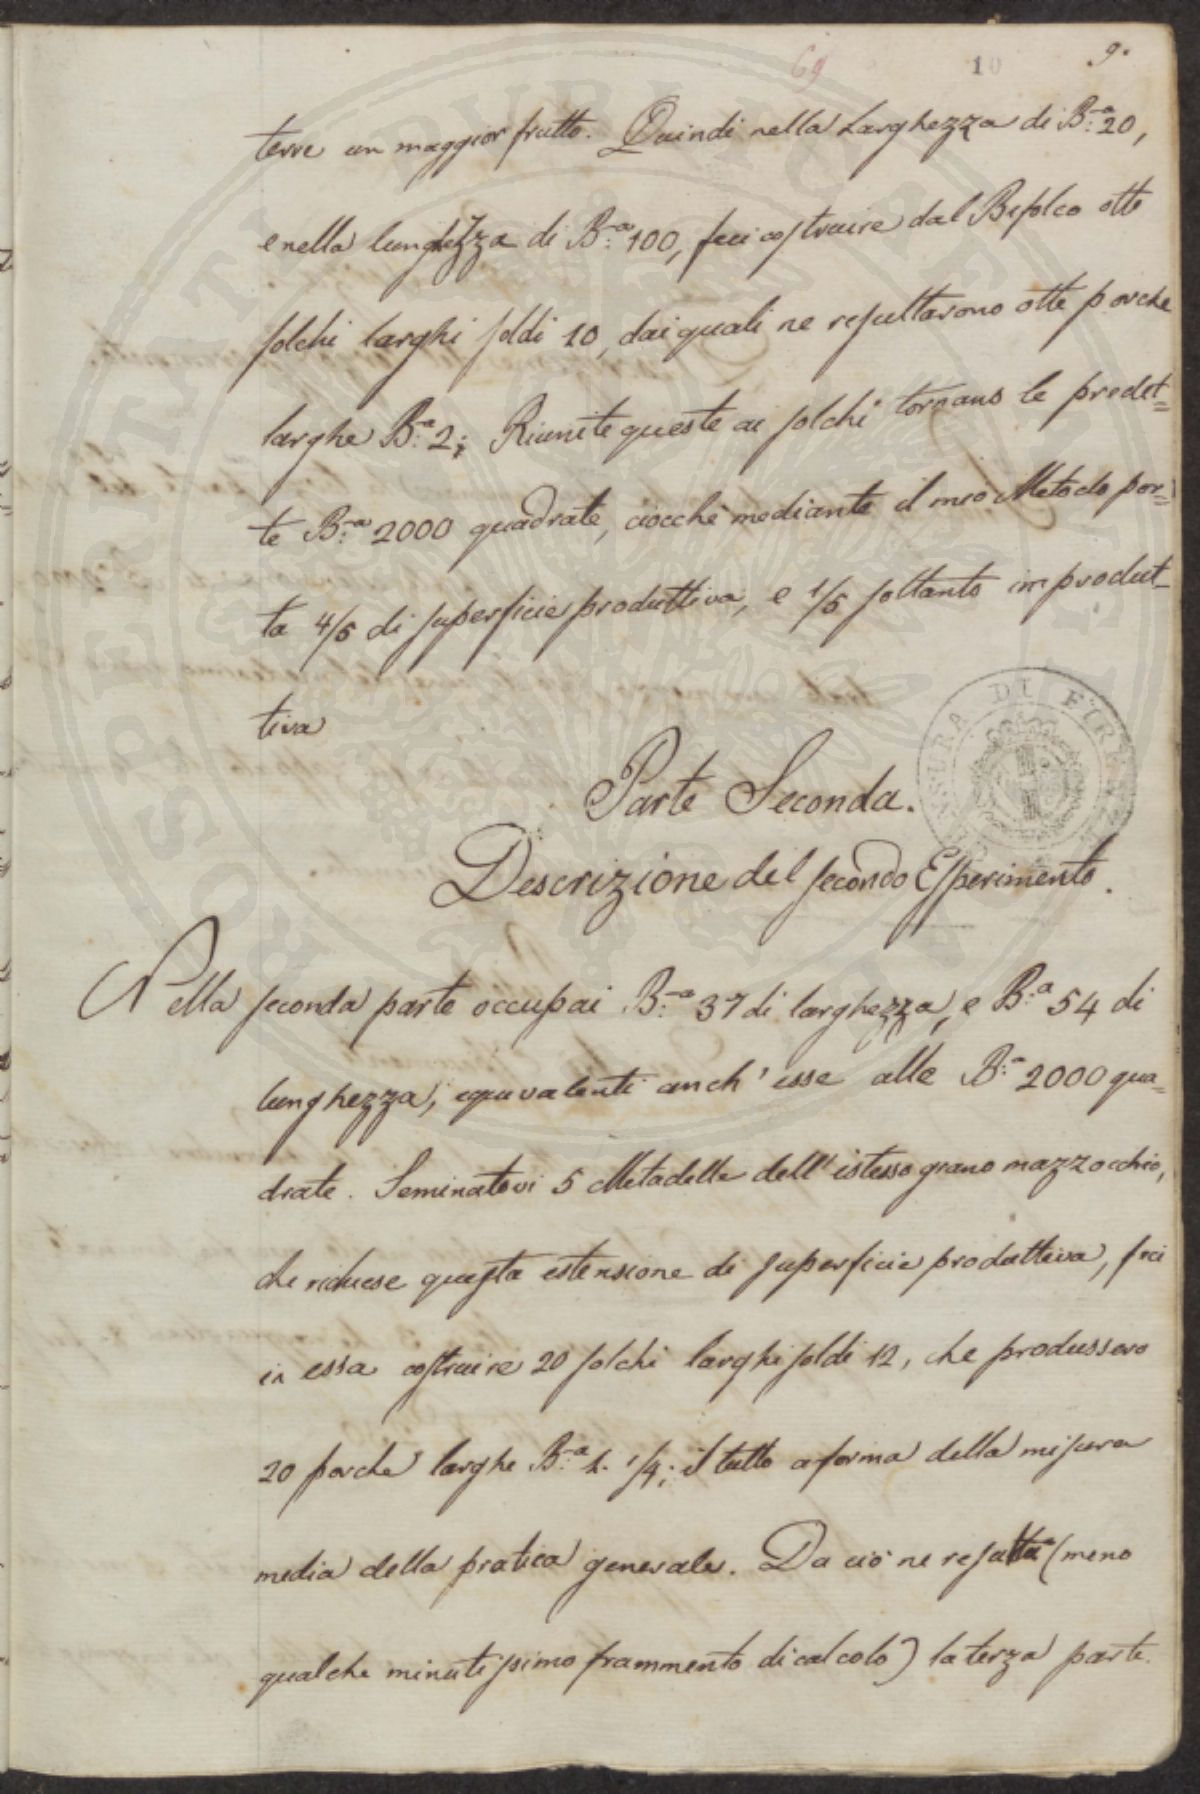 69 10 9.
terre un maggior frutto. Quindi nella Larghezza di B.a 20,
e nella lunghezza di B.a 100, feci costruire dal Bifolco otto
solchi larghi soldi 10, dai quali ne resultarono otto porche
larghe B.a 2; Riunite queste ai solchi tornano le predet=
te B.a 2000 quadrate, ciocchè mediante il mio Metodo por=
ta 4/5 di superficie produttiva, e 1/5 soltanto improdut=
tiva
Parte Seconda.
Descrizione del secondo Esperimento.
Nella seconda parte occupai B.a 37 di larghezza, e B.a 54 di
lunghezza, equivalenti anch' esse alle B.a 2000 qua=
drate. Seminatovi 5 Metadelle dell' istesso grano mazzocchio,
che riduese questa estensione di superficie produttiva, feci
in essa costruire 20 solchi larghi soldi 12, che produssero
20 porche larghe B.a 1. 1/4; il tutto a forma della misura
media della pratica generale. Da ciò ne resulta (meno
qualche minutissimo frammento di calcolo) la terza parte.
PUBLICAE
PROSPERITATI
DI FIRENZE